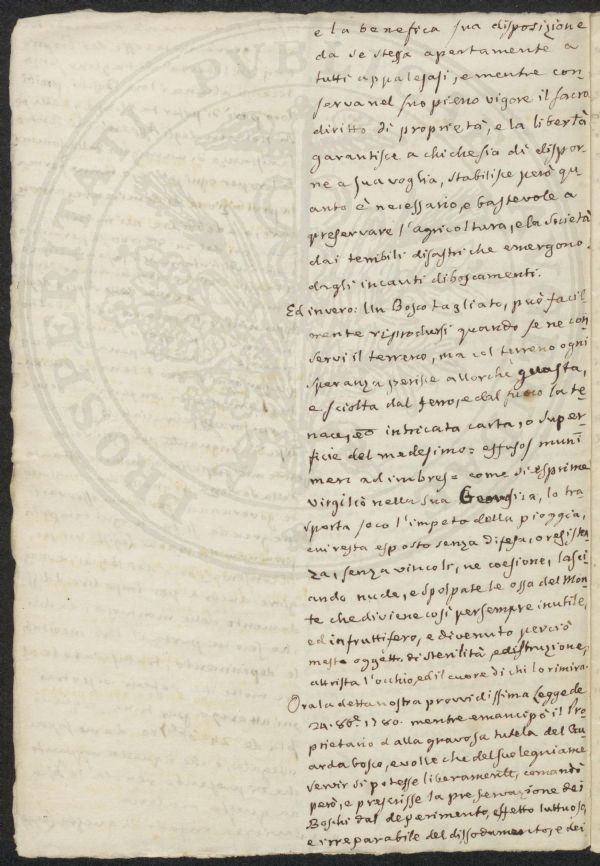 e la benefica sua disposizione
da se stessa apertamente a
tutti appalesasi, e mentre con-
serva nel suo pieno vigore il sacro
diritto di proprietà, e la libertà
garantisce a chichesia di dispor-
ne a sua voglia, stabilisce però qu-
anto è necessario, e bastevole a
preservare l'agricoltura, e la società
dai terribili disastri che emergono
dagli incauti diboscamenti.
Ed invero: Un Bosco tagliato, può facil-
mente riprodursi quando se ne con-
servi il terreno, ma col terreno ogni
speranza perisce allorchè guasta,
e sciolta dal ferro, e dal fuoco la te-
nace, ed intricata carta, o super-
ficie del medesimo = effusos muni-
men ad imbres = come si esprime
Virgilio nella sua Georgica, lo tra-
sporta seco l'impeto della pioggia,
cui resta esposto senza difesa, o resisten-
za, senza vincoli, ne coesione, lasci-
ando nude, e spolpate le ossa del Mon-
te che diviene così per sempre inutile,
ed infruttifero, e divenuto perciò
mesto oggetto di sterilità, e distruzione,
attrista l'occhio, ed il cuore di chi lo rimira.
Ora la detta nostra provvidissima Legge de
24. 8bre. 1780. mentre emancipò il Pro-
prietario dalla gravosa tutela del Gu-
arda bosco, e volle che del suo legname
servir si potesse liberamente, comandò
però, e prescrisse la preservazione dei
Boschi dal deperimento, effetto luttuoso,
e irreparabile del dissodamento, e dei
PROSPERITATI PVBL